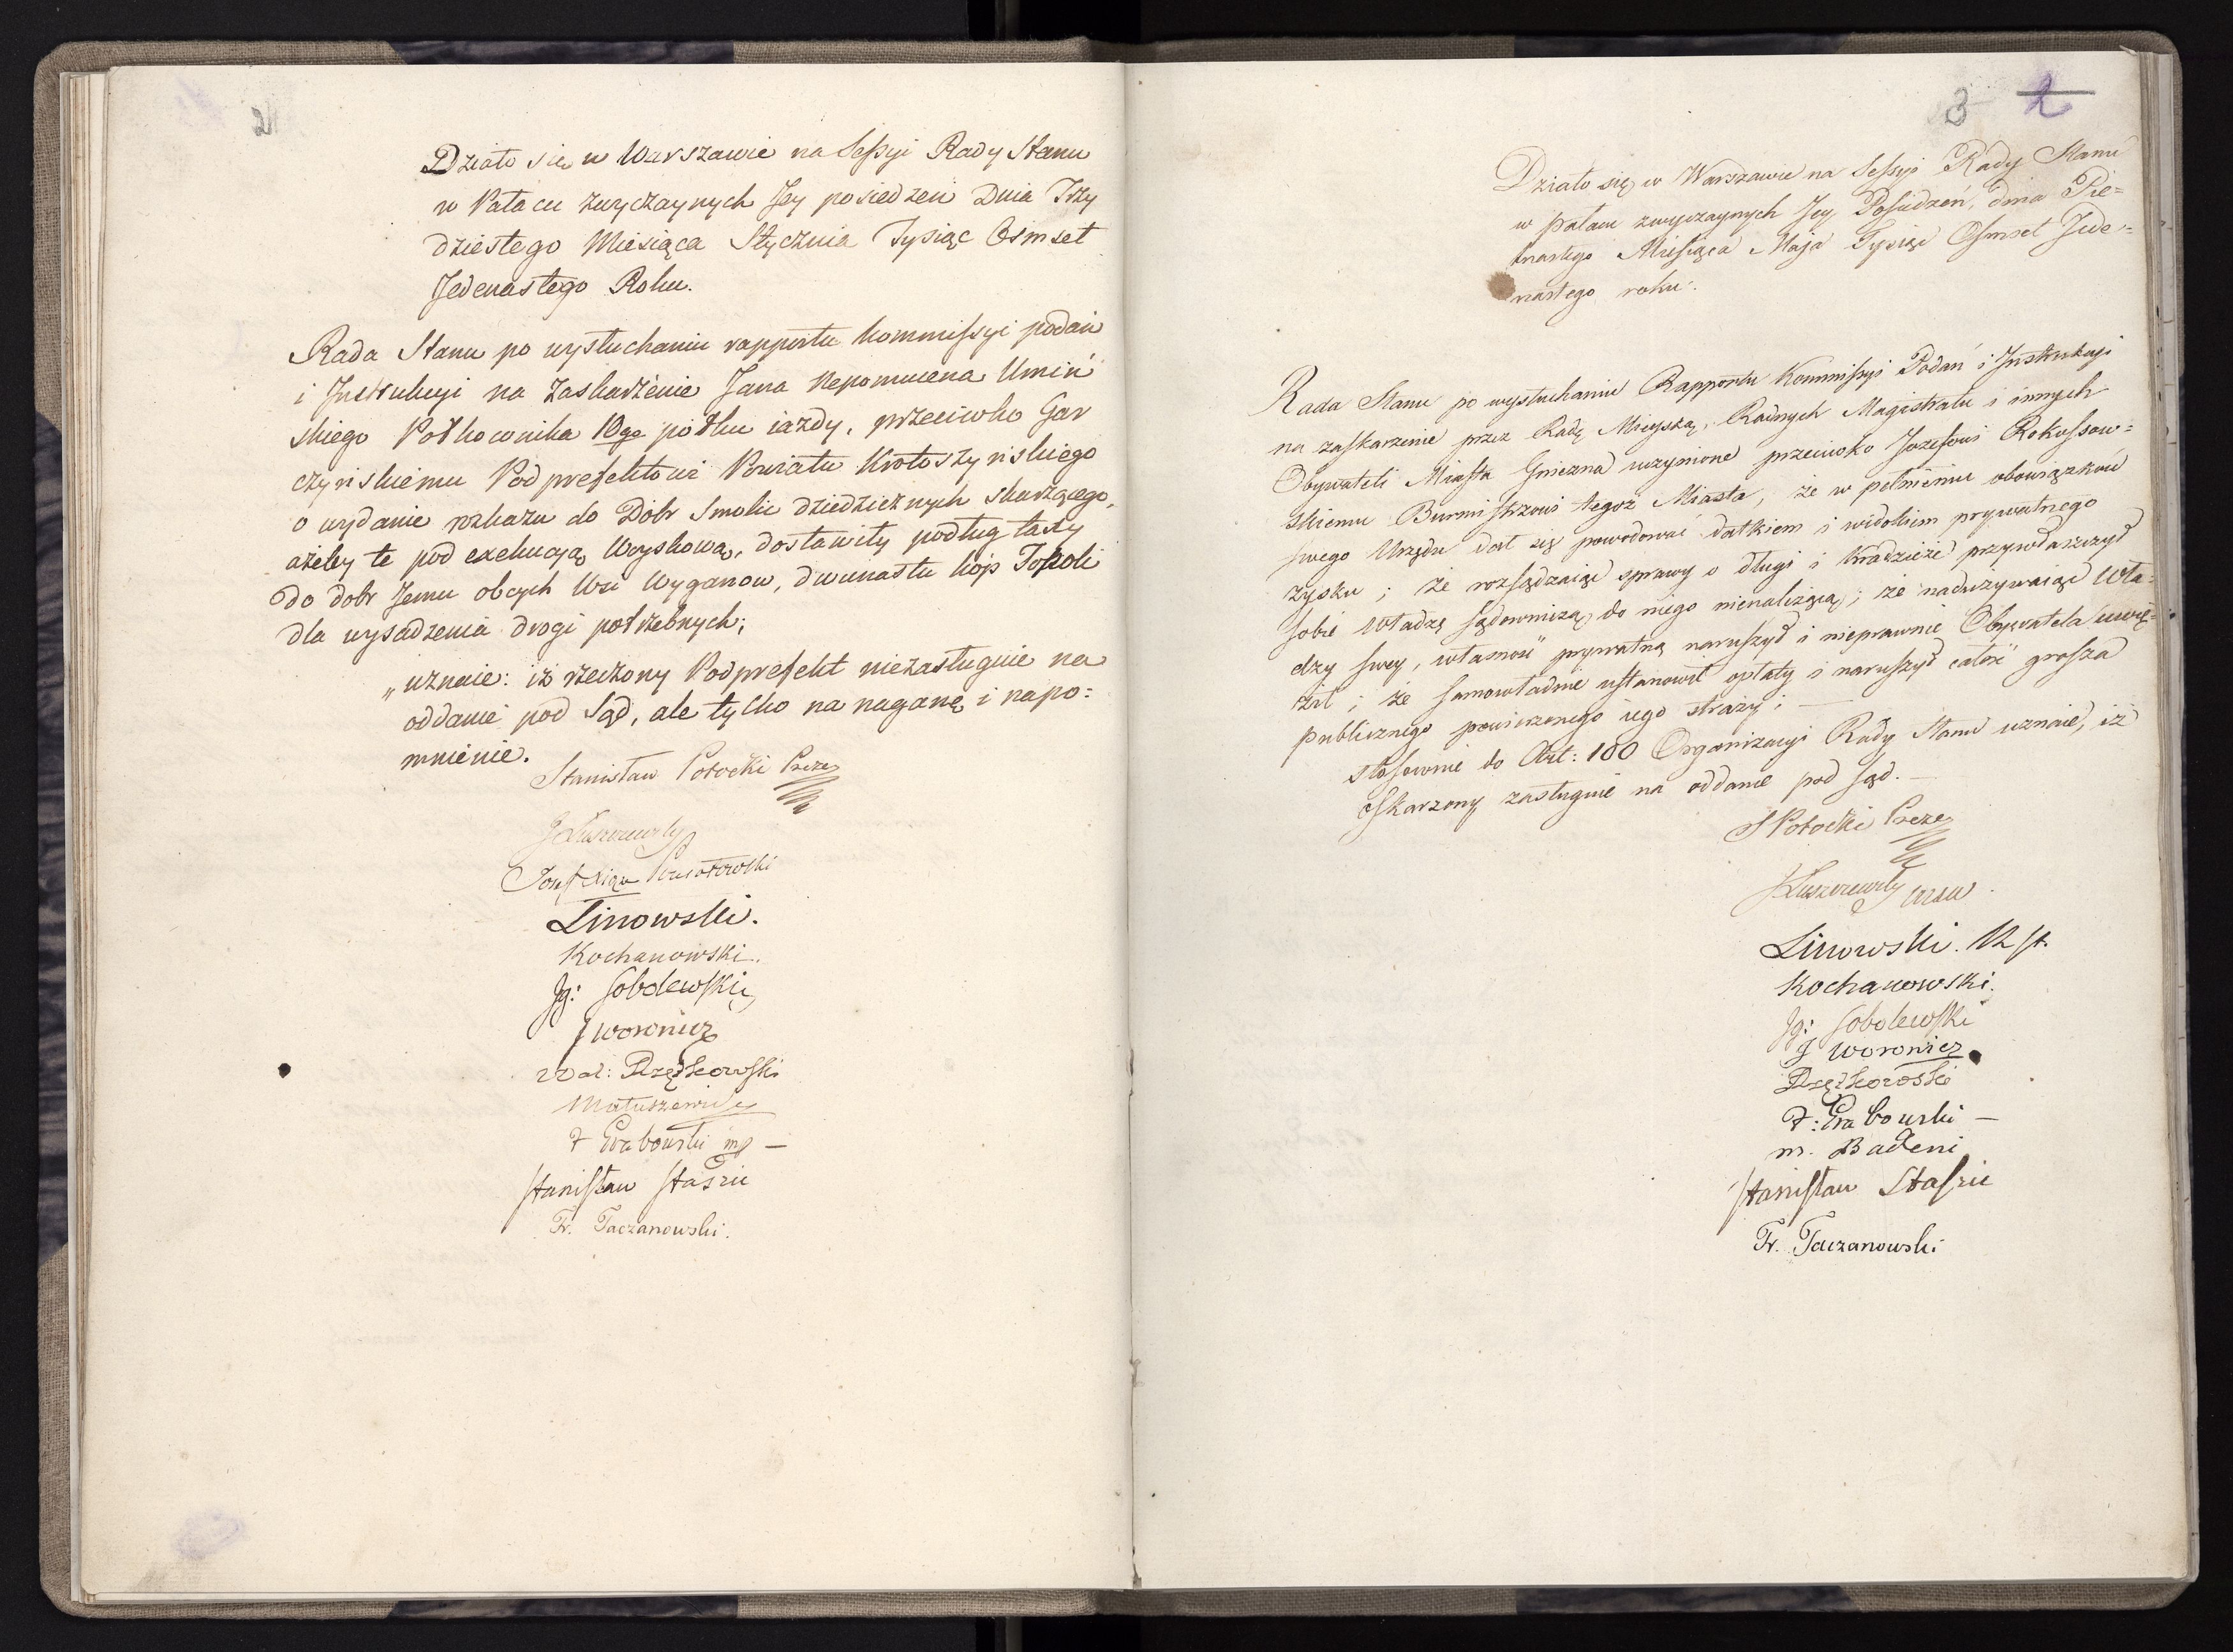 2
Działo się w Warszawie na Sessyi Rady Stanu
w Pałacu zwyczaynych Jey posiedzeń Dnia Trzy
dziestego Miesiąca Stycznia Tysiąc Osmset
Jedenastego Roku.
Rada Stanu po wysłuchaniu rapportu Kommissyi podań
i Instrukcyi na Zaskarżenie Jana Nepomucena Umiń
skiego Połkownika 10go półku iazdy, przeciwko Gar
czyńskiemu Podprefektowi Powiatu Krotoszyńskiego
o wydanie rozkazu do Dóbr Smolic dziedzicznych skarżącego,
ażeby te pod exekucyą Woyskową, dostawiły podług taxy
do dobr Jemu obcych Wsi Wyganow, dwunastu kóp Topoli
dla wysadzenia drogi potrzebnych;
„uznaie: iż rzeczony Podprefekt niezasługuie na
oddanie pod Sąd, ale tylko na naganę i napo=
mnienie.
Stanisław Potocki Prezes
J Łuszczewski
Józef Xiąże Poniatowski
Linowski.
Kochanowski.
Ig: Sobolewski
J Woronicz
Wal: Rzętkowski
Matuszewicz
F Grabowski mp —
Stanisław Staszic
Fr. Taczanowski.
3 2
Działo się w Warszawie na Sessyi Rady Stanu
w pałacu zwyczaynych Jey Posiedzeń, dnia Pię=
tnastego Miesiąca Maja Tysiąc Osmset Jede=
nastego roku.
Rada Stanu po wysłuchaniu Rapportu Kommissyi Podań i Instrukcyi
na zaskarzenie przez Radę Mieyską, Radnych Magistratu i innych
Obywateli Miasta Gniezna uczynione przeciwko Jozefowi Rokossow=
skiemu Burmistrzowi tegoż Miasta, że w pełnieniu obowiązków
swego Urzędu dał się powodować datkiem i widokiem prywatnego
zysku; że rozsądzaiąc sprawy o długi i kradzieże przywłaszczył
sobie władzę sądowniczą do niego nienależącą; że nadużywaiąc wła=
dzy swey, własność prywatną naruszył i nieprawnie Obywatela uwię=
ził; że samowładnie ustanowił opłaty i naruszył całość grosza
publicznego powierzonego iego straży; —
stosownie do Art: 100 Organizacyi Rady Stanu uznaie, iż
oskarzony zasługuie na oddanie pod sąd. —
S Potocki Prezes
J Łuszczewski
Linowski. R st.
Kochanowski.
Ig: Sobolewski
J Woronicz
Rzętkowski
F: Grabowski —
m. Badeni
Stanisław Staszic
Fr. Taczanowski.